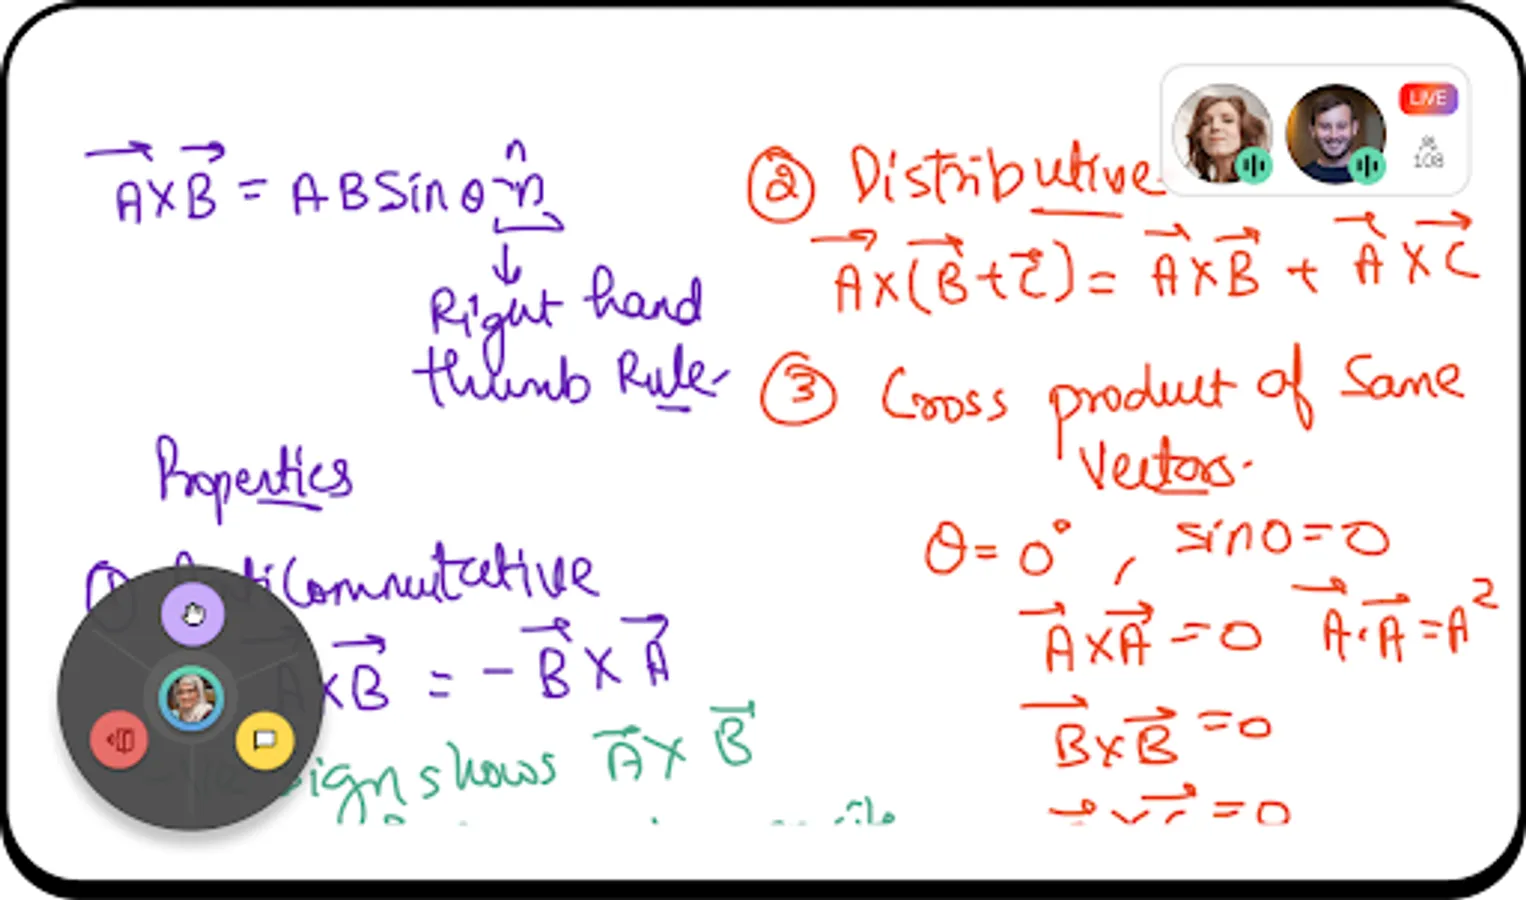 n̂
A⃗ × B⃗ = A B Sin θ n̂
↓
Right hand
thumb Rule
Properties
① AntiCommutative
A⃗ × B⃗ = - B⃗ × A⃗
sign shows A⃗ × B⃗
② Distributive
A⃗ × (B⃗ + C⃗) = A⃗ × B⃗ + A⃗ × C⃗
③ Cross product of Same
Vectors.
θ = 0° , sin 0 = 0
A⃗ × A⃗ = 0 A⃗ · A⃗ = A²
B⃗ × B⃗ = 0
= 0
LIVE
108